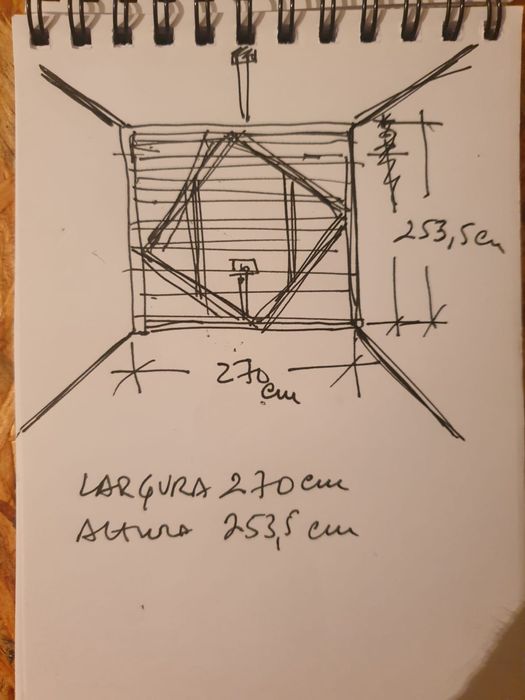 253,5cm
270
cm
LARGURA 270cm
ALTURA 253,5 cm